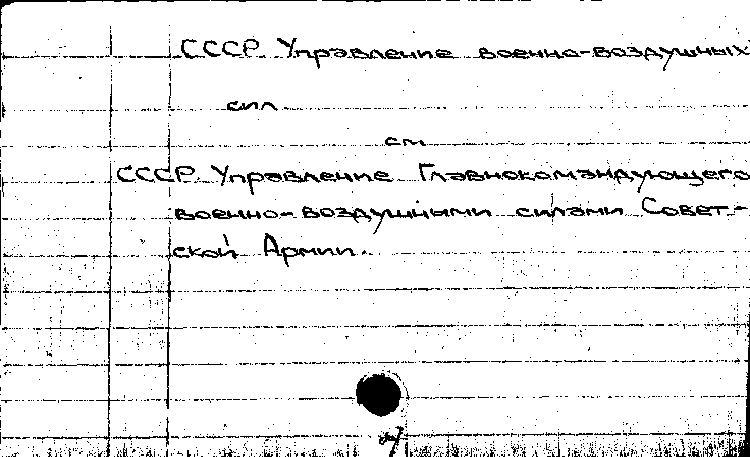 СССР Управление военно-воздушных
сил
см
СССР Управление Главнокомандующего
военно-воздушными силами Совет-
ской Армии.